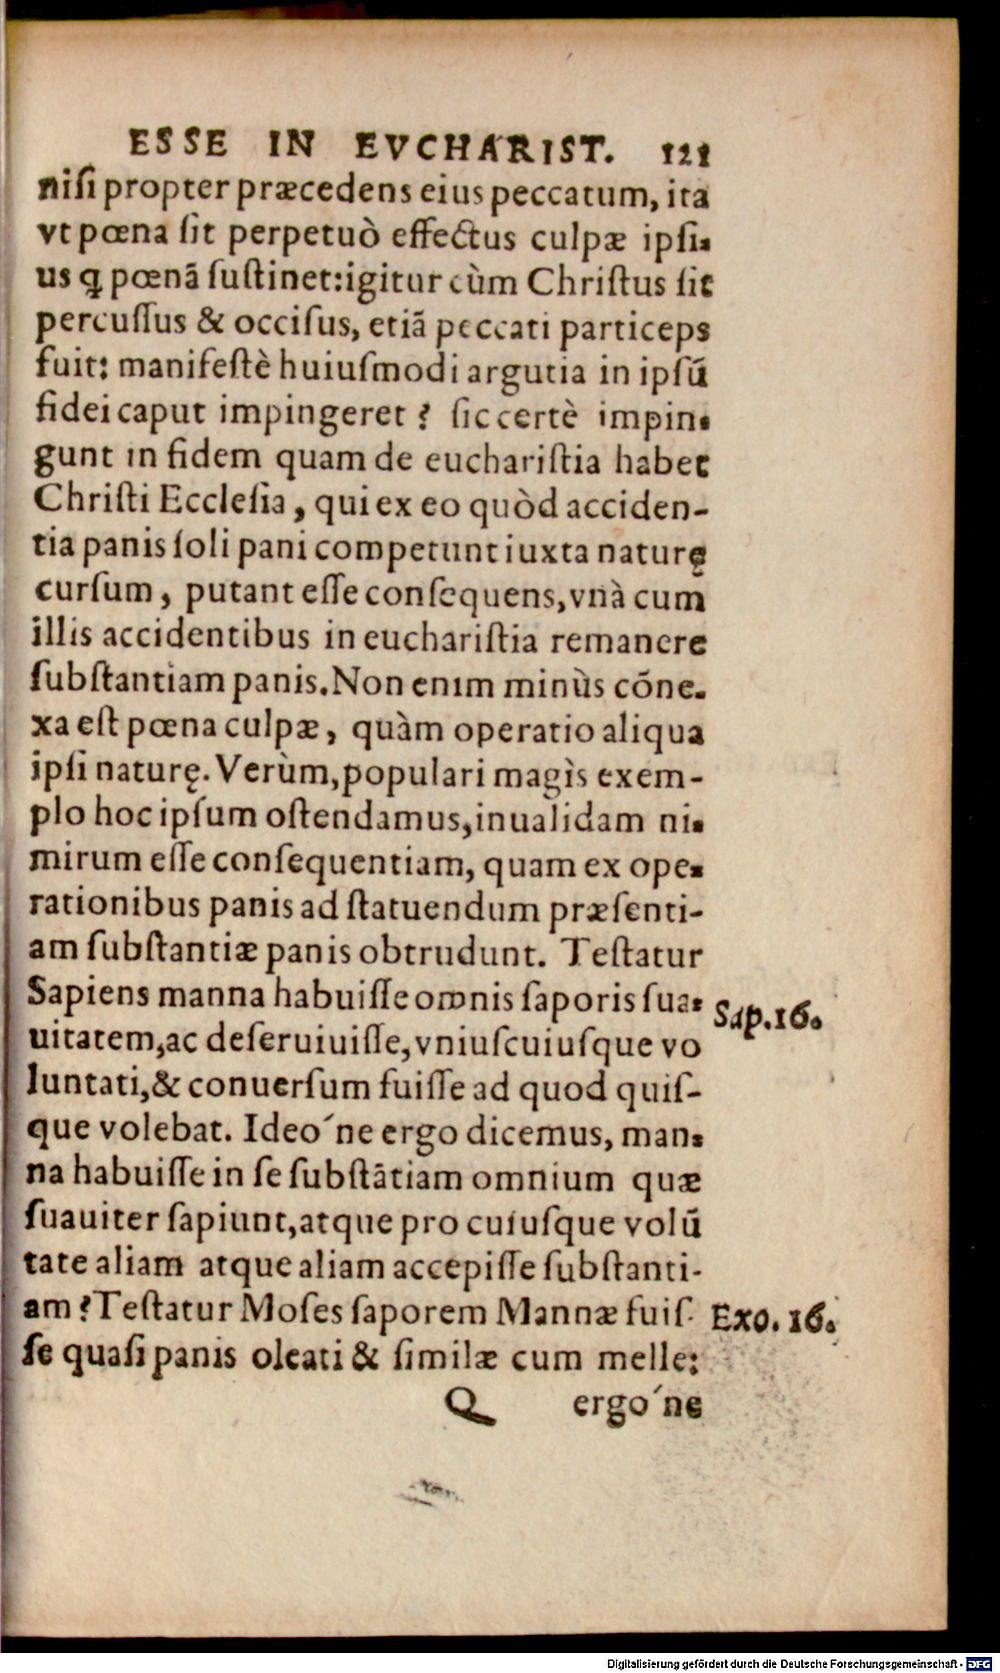 ESSE IN EVCHARIST. 121
niſi propter præcedens eius peccatum, ita
vt pœna ſit perpetuò effectus culpæ ipſi-
us ꝗ pœnā ſuſtinet:igitur cùm Chriſtus ſit
percuſſus & occiſus, etiā peccati particeps
fuit: manifeſtè huiuſmodi argutia in ipſū
fidei caput impingeret? ſic certè impin-
gunt in fidem quam de euchariſtia habet
Chriſti Eccleſia, qui ex eo quòd acciden-
tia panis ſoli pani competunt iuxta naturę
curſum, putant eſſe conſequens, vnà cum
illis accidentibus in euchariſtia remanere
ſubſtantiam panis. Non enim minùs cōne-
xa eſt pœna culpæ, quàm operatio aliqua
ipſi naturę. Verùm, populari magìs exem-
plo hoc ipſum oſtendamus, inualidam ni-
mirum eſſe conſequentiam, quam ex ope-
rationibus panis ad ſtatuendum præſenti-
am ſubſtantiæ panis obtrudunt. Teſtatur
Sapiens manna habuiſſe omnis ſaporis ſua-
Sap. 16.
uitatem, ac deſeruiuiſſe, vniuſcuiuſque vo
luntati, & conuerſum fuiſſe ad quod quiſ-
que volebat. Ideo´ne ergo dicemus, man-
na habuiſſe in ſe ſubſtātiam omnium quæ
ſuauiter ſapiunt, atque pro cuiuſque volū
tate aliam atque aliam accepiſſe ſubſtanti-
am? Teſtatur Moſes ſaporem Mannæ fuiſ-
Exo. 16.
ſe quaſi panis oleati & ſimilæ cum melle:
Q ergo´ne
Digitalisierung gefördert durch die Deutsche Forschungsgemeinschaft - DFG